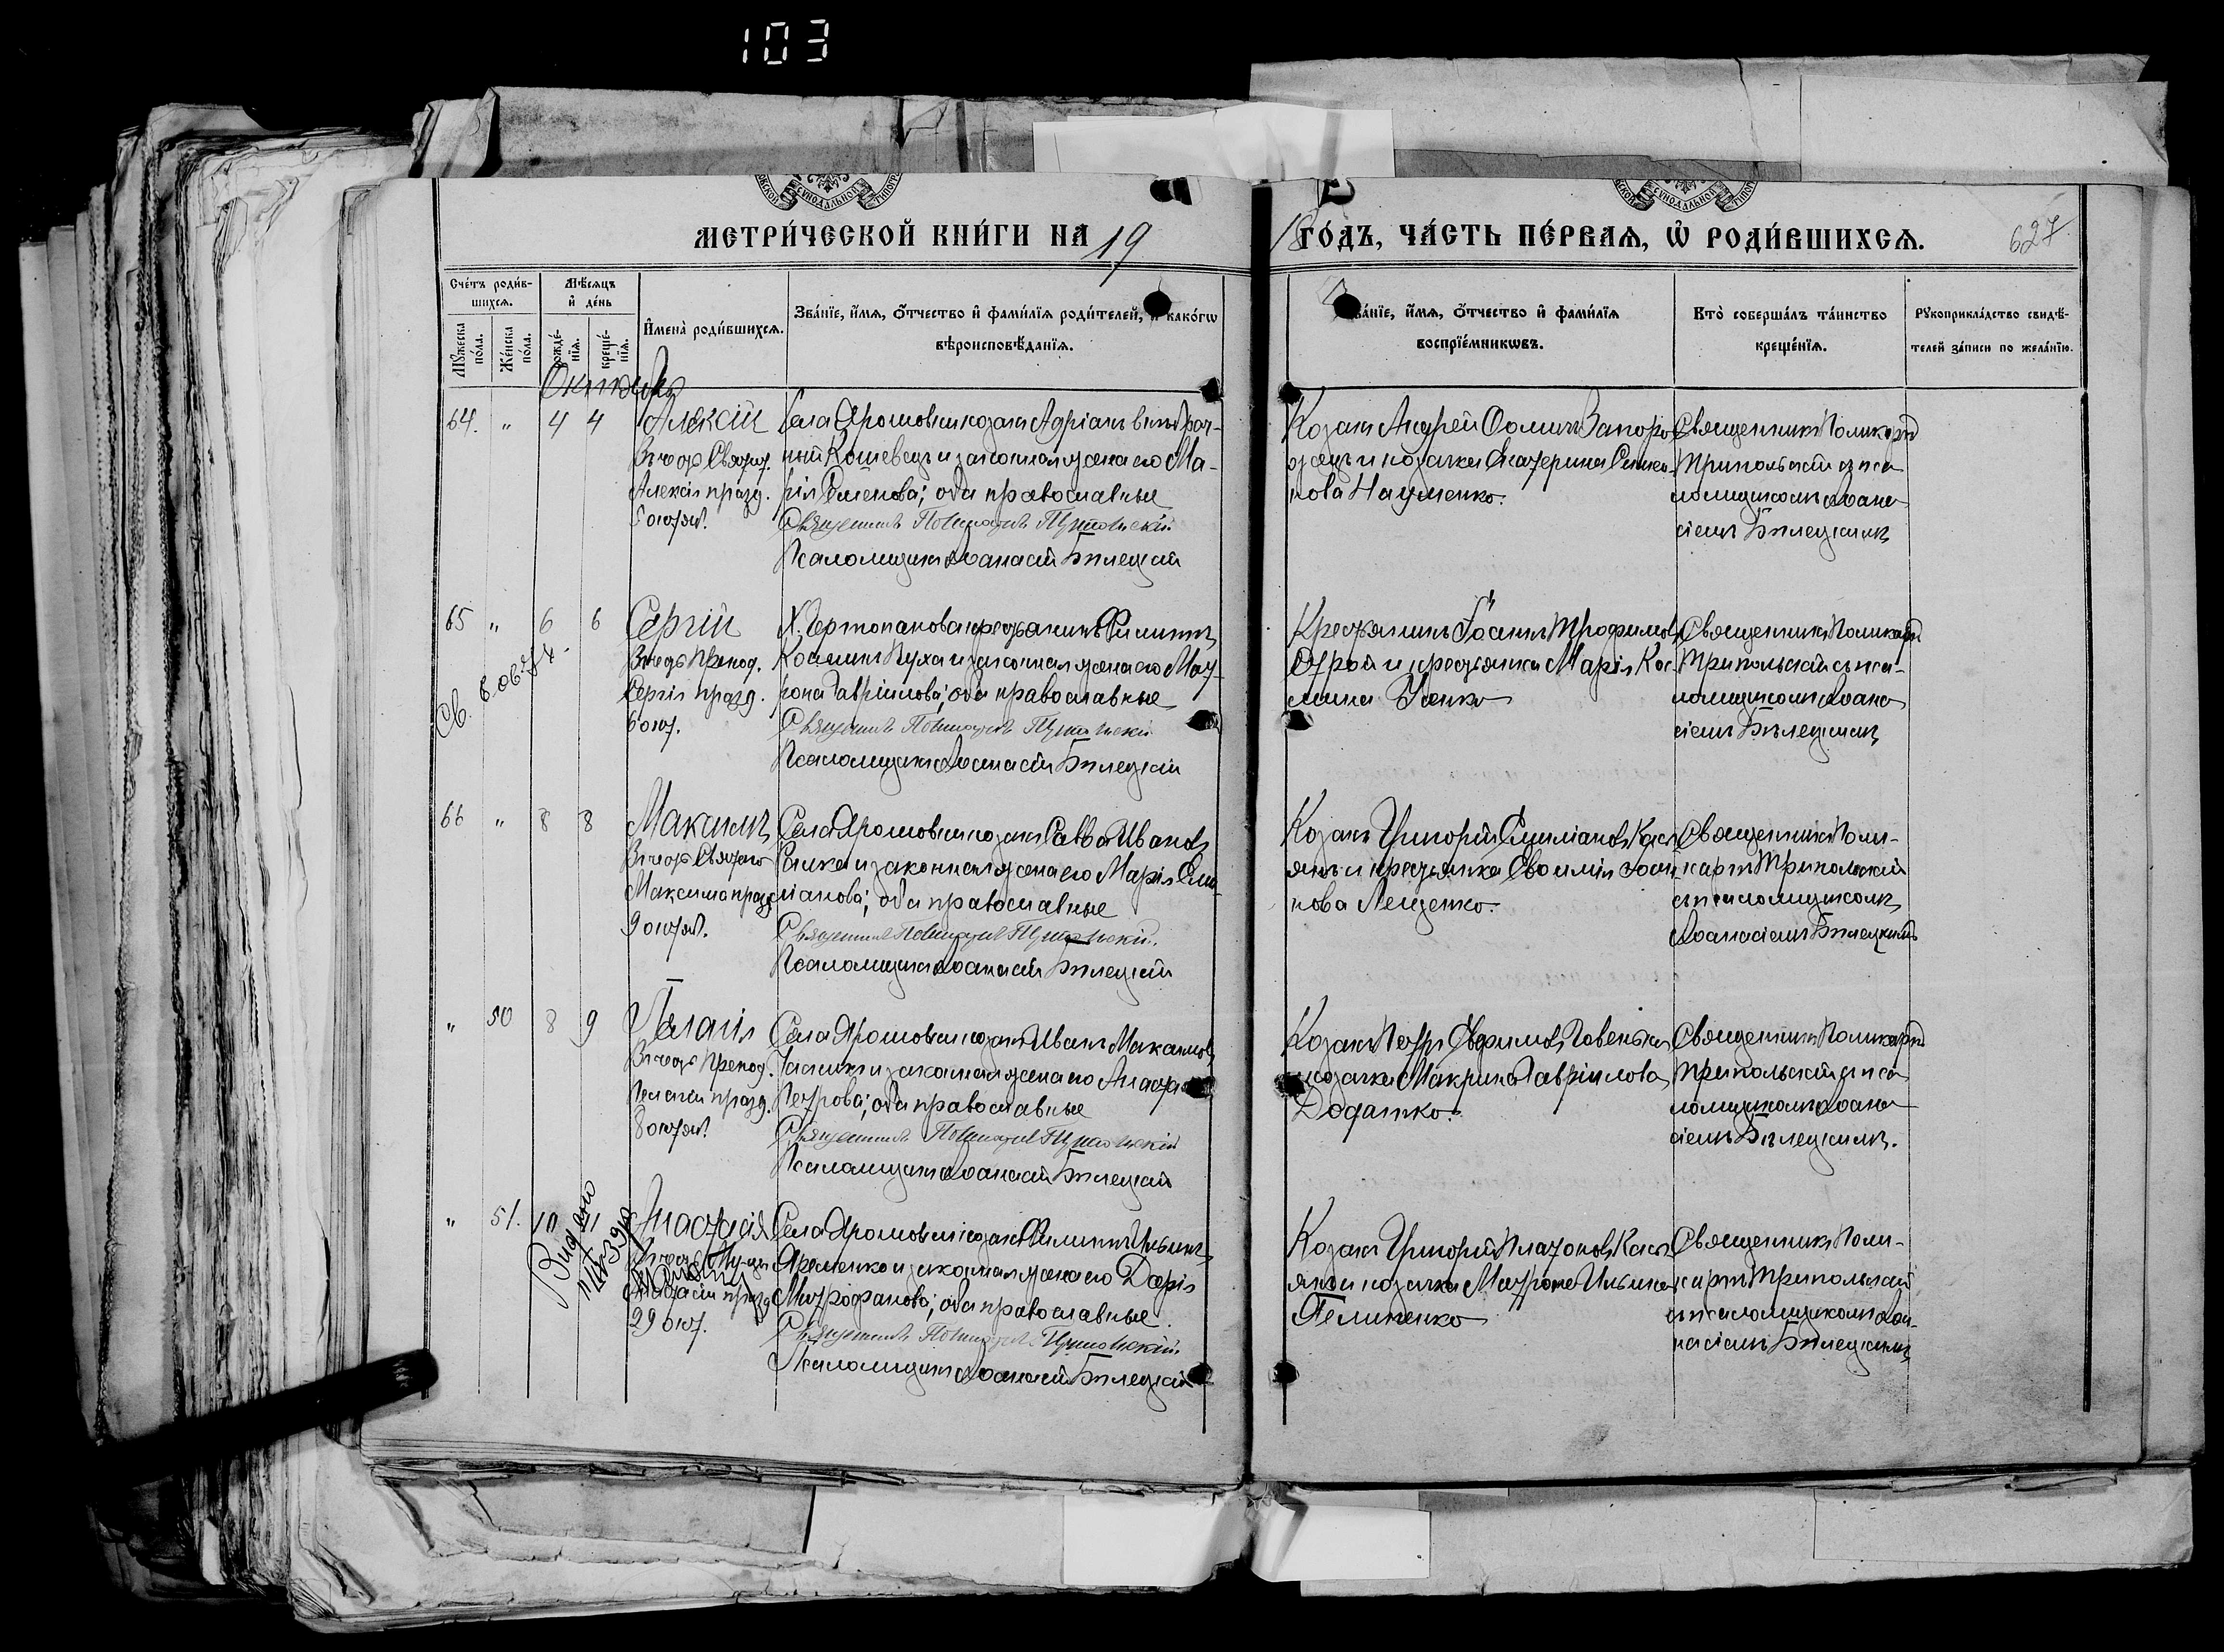 103
МЕТРИ́ЧЕСКОЙ КНИ́ГИ НА 19
18 ГО́ДЪ, ЧА́СТЬ ПЕ́РВАЯ, Ѽ РОДИ́ВШИХСЯ.
627
Сче́тъ роди́в-
шихся.
Мѣ́сяцъ
и҆ де́нь
Мꙋ́жеска
по́ла.
Же́нска
по́ла.
рожде́-
нїѧ.
креще́-
нїѧ.
И҆мена̀ роди́вшихсѧ.
Зва́нїе, и҆́мѧ, ѻ҆́тчество и҆ фами́лїѧ роди́телей, и҆ како́гѡ
вѣроисповѣ́данїѧ.
зва́нїе, и҆́мѧ, ѻ҆́тчество и҆ фами́лїѧ
воспрїе́мникѡвъ.
Кто̀ соверша́лъ та́инство
креще́нїѧ.
Рꙋкоприкла́дство свидѣ́-
телей за́писи по жела́нїю.
Октябрь
64. " 4 4 Алексій
Въ честь Святит.
Алексія празд.
5 октяб.
Села Ярошовки козакъ Адріанъ
Кошевецъ и законная жена его Ма-
рія Семенова; оба православные
Священникъ Поликарпъ Трипольскій
Псаломщикъ Аѳанасій Бѣлецкій
Козакъ Андрей Ѳоминъ Запоро-
жецъ и козачка Екатерина
Науменко.
Священникъ Поликарпъ
Трипольскій съ пса-
ломщикомъ Аѳана-
сіемъ Бѣлецкимъ
65 " 6 6 Сергій
Въ честь Препод.
Сергія празд.
6 окт.
Х. Чертопановки крестьянинъ Филиппъ
Косминъ Пуха и законная жена его Мат-
рона Гавріилова; оба православные
Священникъ Поликарпъ Трипольскій
Псаломщикъ Аѳанасій Бѣлецкій
Крестьянинъ Іоаннъ Трофимовъ
и крестьянка Марія Кос-
мина
Священникъ Поликарпъ
Трипольскій съ пса-
ломщикомъ Аѳана-
сіемъ Бѣлецкимъ
66 " 8 8 Максимъ
Въ честь Святаго
Максима празд.
9 октяб.
Села Ярошовки козакъ Савва Ивановъ
и законная жена его Марія Еми-
ліанова; оба православные
Священникъ Поликарпъ Трипольскій.
Псаломщикъ Аѳанасій Бѣлецкій
Козакъ Григорій Емиліановъ Кась-
янъ и крестьянка Евѳимія Іоан-
нова Лещенко.
Священникъ Поли-
карпъ Трипольскій
съ псаломщикомъ
Аѳанасіемъ Бѣлецкимъ
" 50 8 9 Пелагія
Въ честь Препод.
Пелагіи празд.
8 октяб.
Села Ярошовки козакъ Иванъ Максимовъ
и законная жена его Анастасія
Петрова; оба православные
Священникъ Поликарпъ Трипольскій
Псаломщикъ Аѳанасій Бѣлецкій
Козакъ Петръ Евфимовъ
и козачка Макрина Гавріилова
Додатко.
Священникъ Поликарпъ
Трипольскій съ пса-
ломщикомъ Аѳана-
сіемъ Бѣлецкимъ.
" 51. 10 11 Анастасія
Анастасіи празд.
29 окт.
Села Ярошовки козакъ Филиппъ Ильинъ
Яременко и законная жена его Дарія
Митрофанова; оба православные.
Священникъ Поликарпъ Трипольскій.
Псаломщикъ Аѳанасій Бѣлецкій
Козакъ Григорій Платоновъ Кась-
янъ и козачка Матрона Ильина
Священникъ Поли-
карпъ Трипольскій
съ псаломщикомъ Аѳа-
насіемъ Бѣлецкимъ